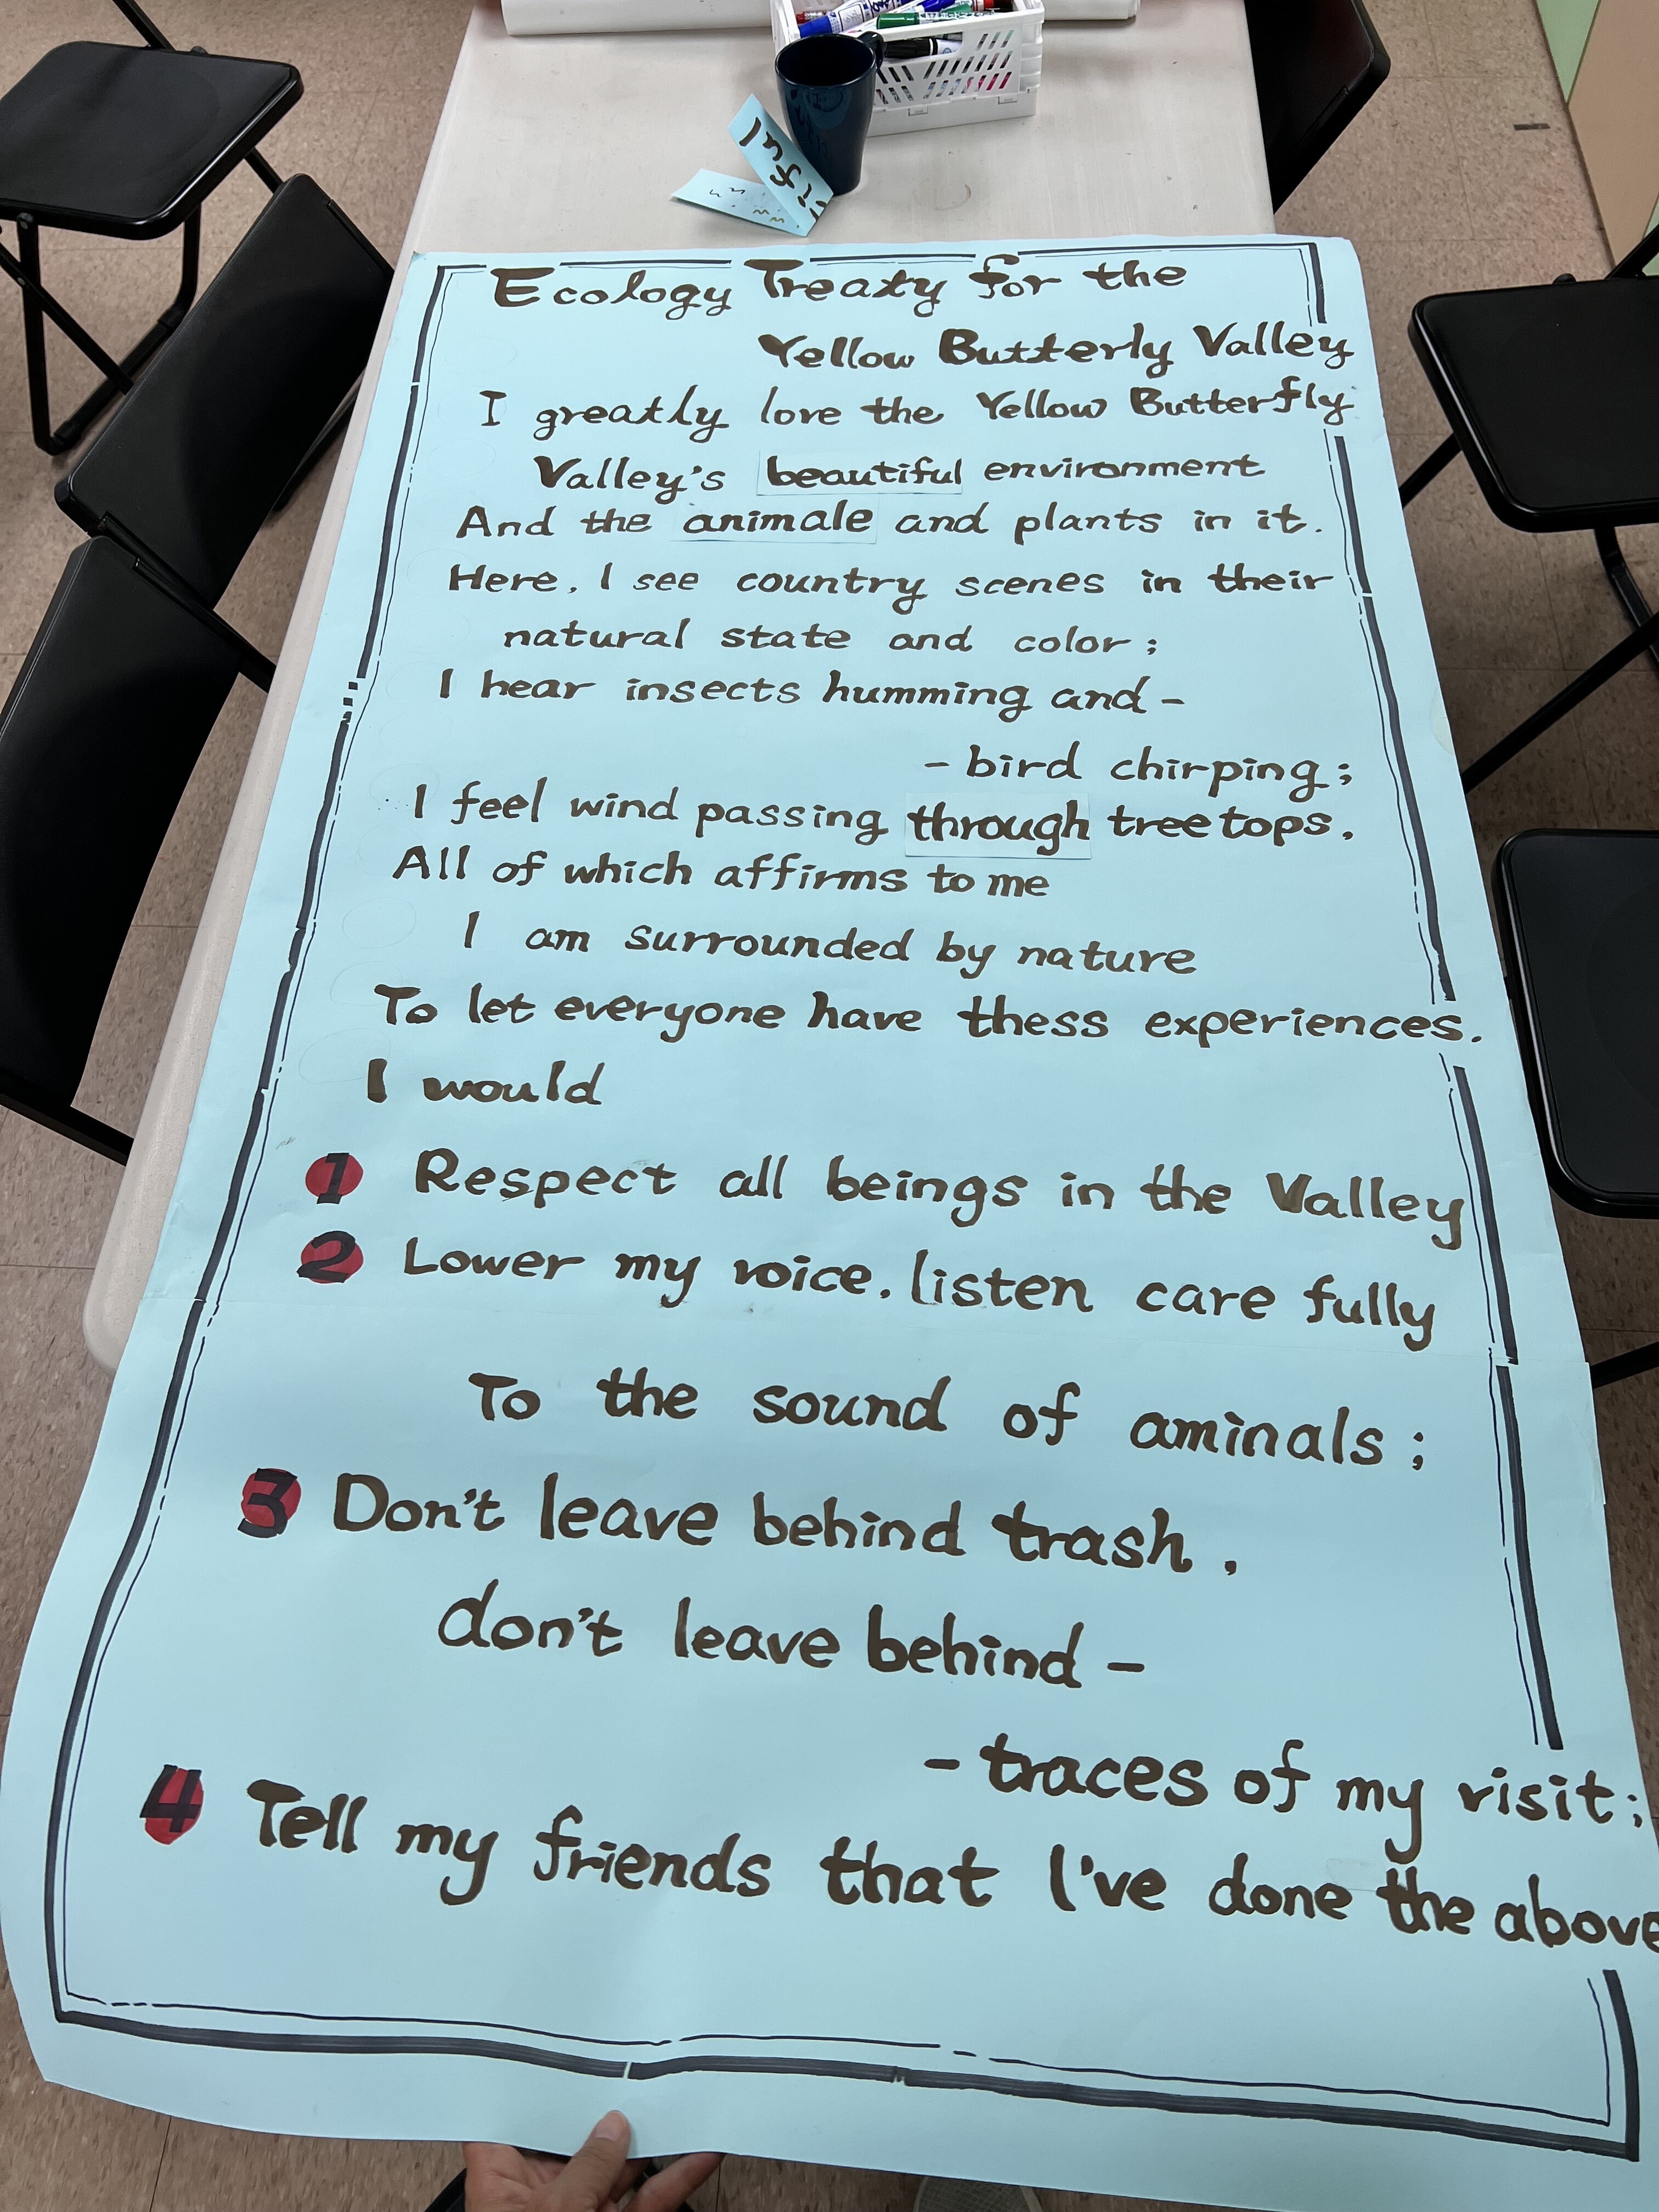 iful
Ecology Treaty for the
Yellow Butterly Valley
I greatly love the Yellow Butterfly
Valley's beautiful environment
And the animale and plants in it.
Here, I see country scenes in their
natural state and color;
I hear insects humming and -
- bird chirping;
I feel wind passing through tree tops,
All of which affirms to me
I am surrounded by nature
To let everyone have thess experiences.
I would
1 Respect all beings in the Valley
2 Lower my voice, listen care fully
To the sound of aminals;
3 Don't leave behind trash,
don't leave behind -
- traces of my visit;
4 Tell my friends that I've done the above